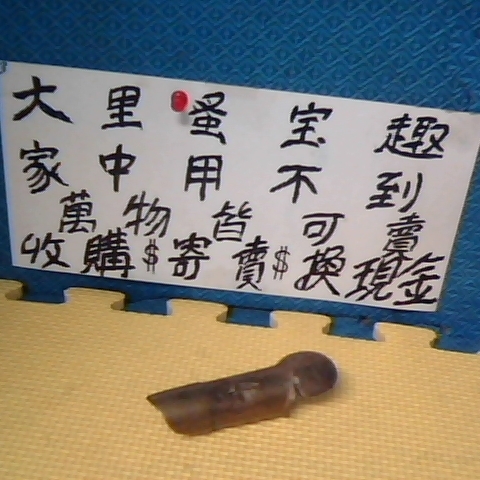 大里蚤宝趣
家中用不到
萬物皆可賣
收購$寄賣$換現金